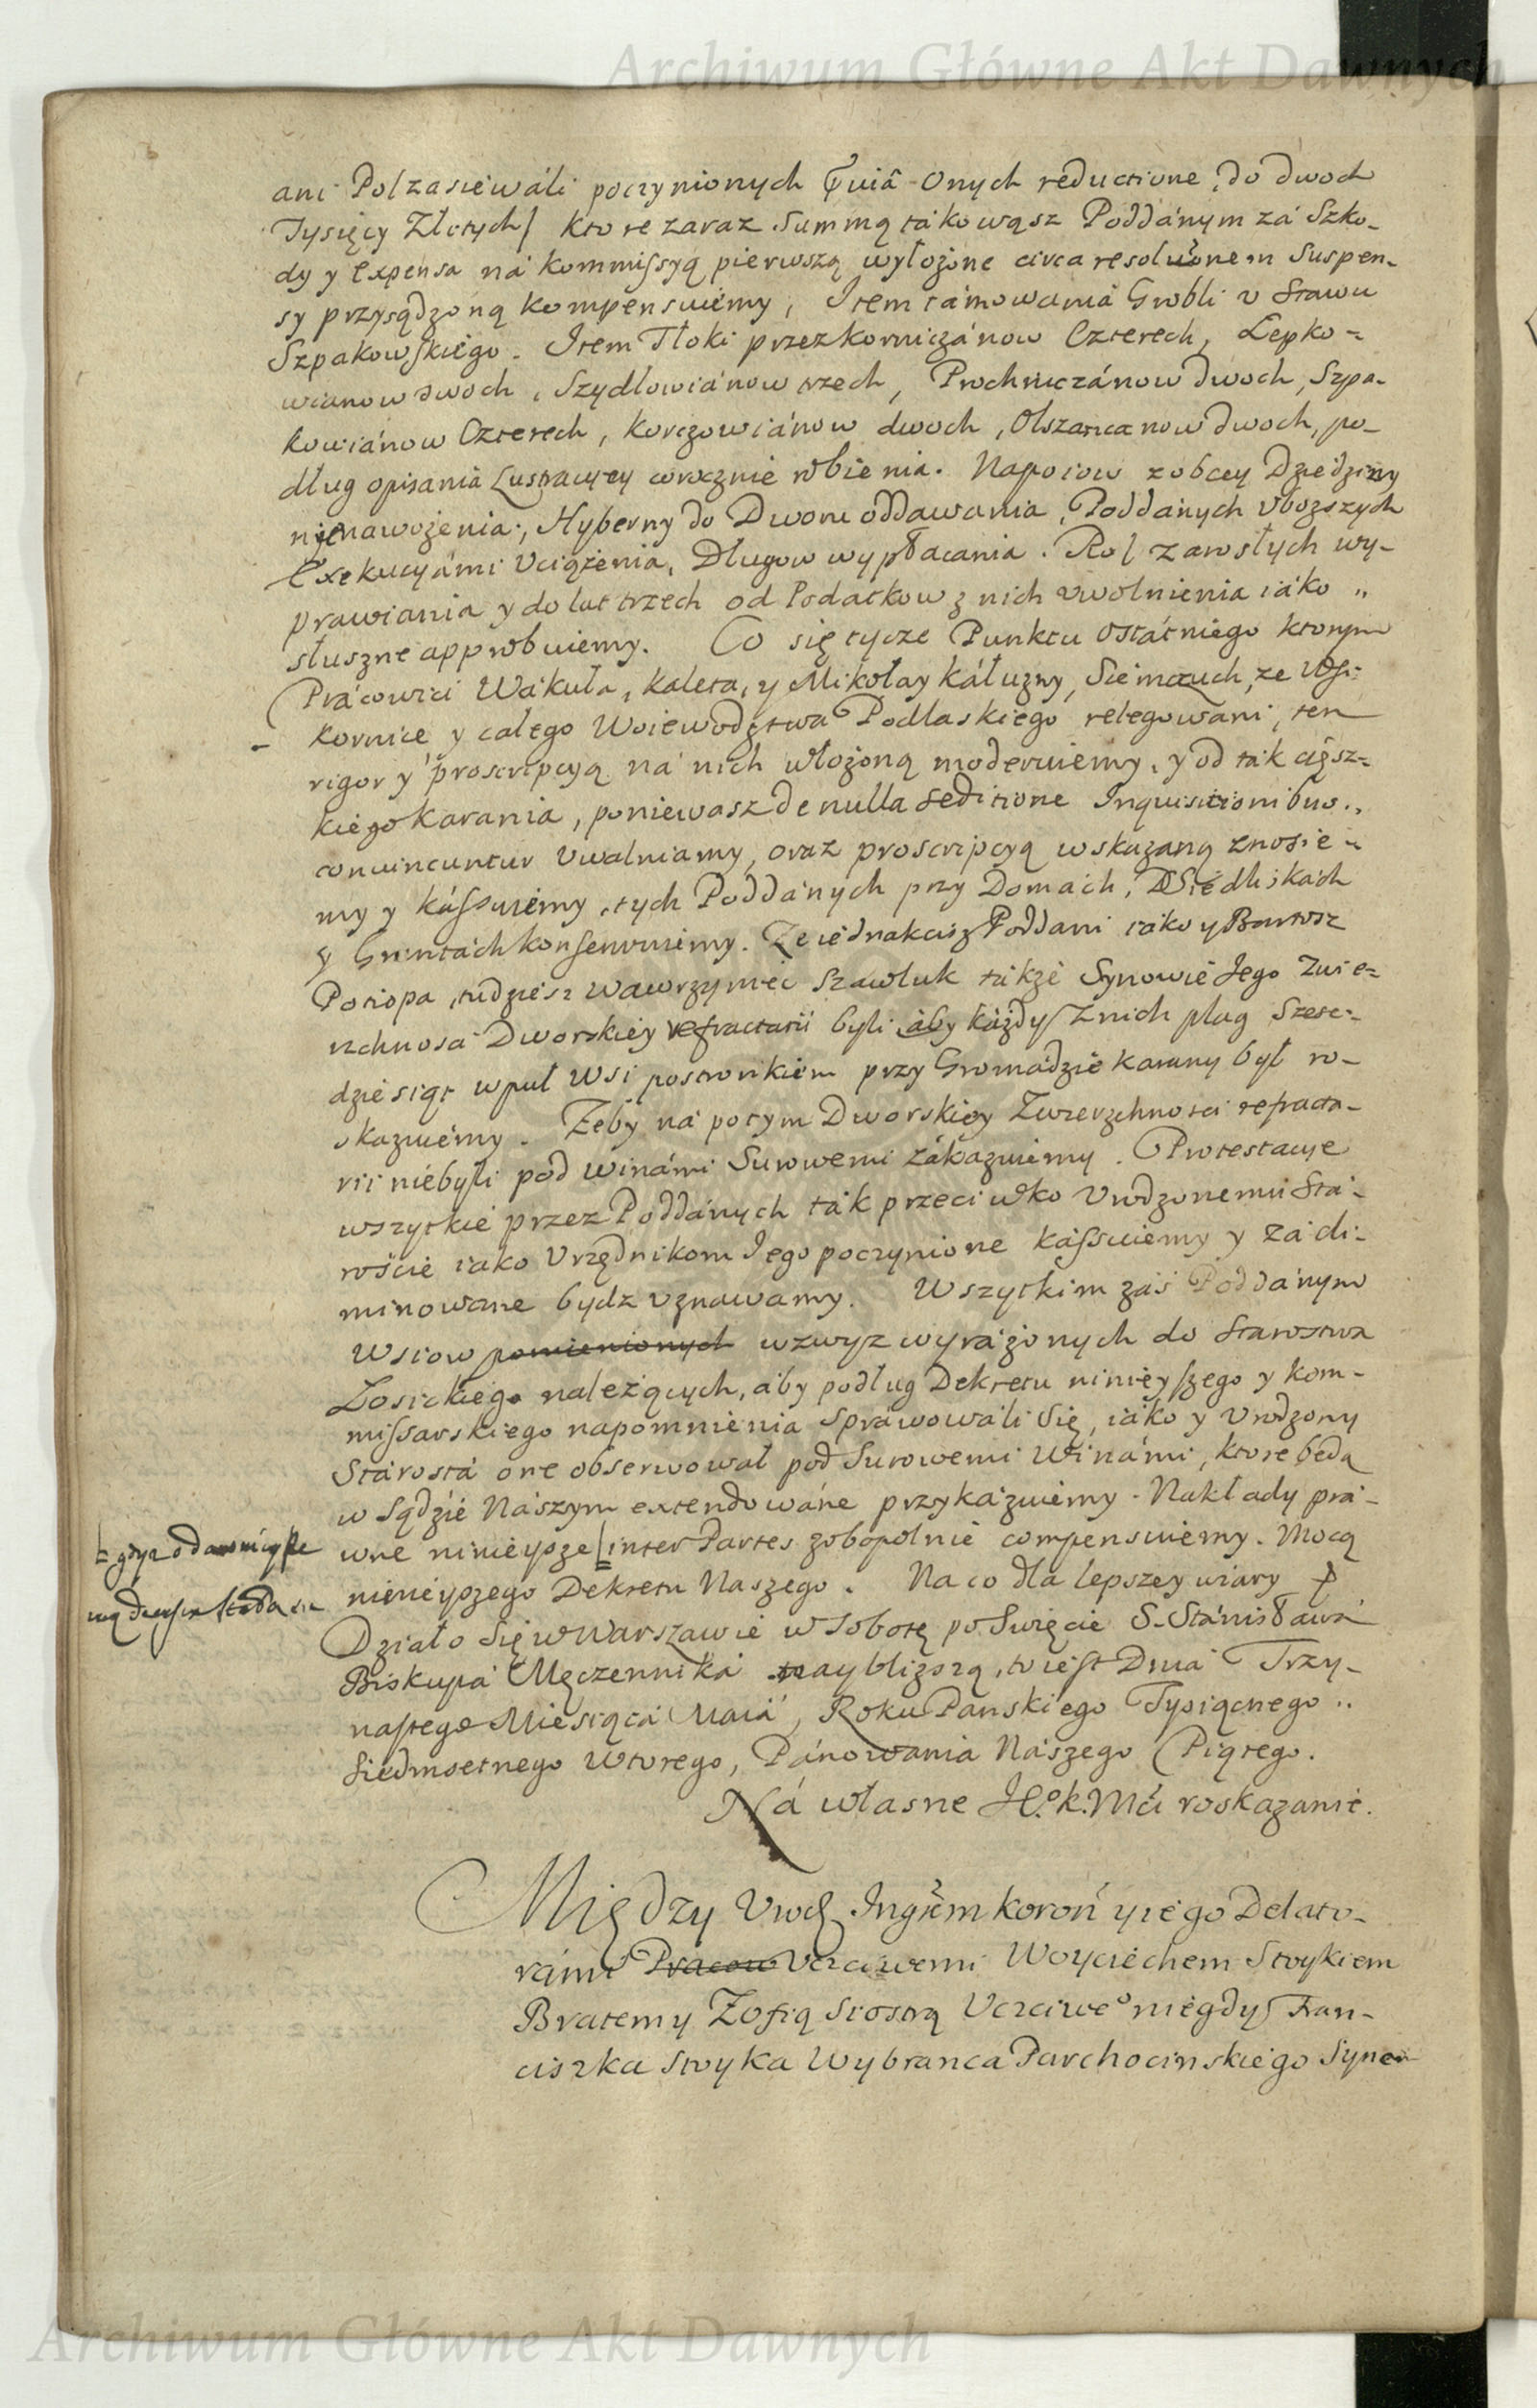 Archiwum Główne Akt Dawnych
ani Pol zasiewáli poczynionych quiâ onych reductione, do dwoch
Tysięcy Złotych/ ktore zaraz summą tákowąsz Poddánym zá Szko-
dy y expensa ná kommissyą pierwszą wyłożone circa resolutionem suspen-
sy przysądzoną kompensuiemy, Item támowania Grobli v Stawu
Szpakowskiego. Item Tłoki przez korniczánow Czterech, Lepko-
wianow dwoch, Szydłowiánow trzech, Prochniczánow dwoch, Szpa-
kowiánow Czterech, korczowiánow dwoch, Olszanicanow dwoch, po-
dług opisania Lustracyey corocznie robienia. Napoiow z obcey Dziedziny
nienawożenia, Hyberny do Dworu oddawania, Poddánych vbozszych
Exekucyámi vciążenia, Długow wypłacania. Rol zarosłych wy-
prawiania y do lat trzech od Podatkow z nich vwolnienia iáko
słuszne approbuiemy. Co się tycze Punktu ostátniego ktorym
Prácowici Wakuła, kaleta, y Mikołay káłuzny, Siemczuch, ze Wsi
kornice y całego Woiewodztwa Podlaskiego relegowani, ten
rigor y proscripcyą ná nich włożoną moderuiemy, y od ták cięsz-
kiego karania, poniewasz de nulla seditione Inquisitionibus
conuincuntur vwalniamy, oraz proscripcyą wskazaną znosie-
my y kássuiemy, tych Poddánych przy Domách, Siedliskách
y Gruntách konserwuiemy. Ze iednakcisz Poddani iáko y Bartosz
Potiopa, tudziesz Wawrzyniec Szawluk tákze Synowie Jego Zwie-
rzchnosci Dworskiey refractarii byli, áby káżdy z nich plag szesc-
dziesiąt wpuł Wsi postronkiem przy Gromádzie karany był ro-
skazuiemy. Zeby ná potym Dworskiey Zwierzchnosci refracta-
rii niebyli pod winámi Surowemi zákazuiemy. Protestacye
wszytkie przez Poddánych ták przeciwko Vrodzonemu Stá-
roście iako Vrzędnikom Jego poczynione kássuiemy y zá eli-
minowane bydz vznawamy. Wszytkim zás Poddánym
Wsiow pomienionych wzwysz wyráżonych do Starostwa
Łosickiego należących, áby podług Dekretu ninieyszego y kom-
missarskiego napomnienia spráwowáli się, iáko y Vrodzony
Stárostá one obserwował pod Surowemi Winámi, ktore będą
w Sądzie Nászym extendowáne przykázuiemy. Nakłady prá-
wne ninieysze inter Partes zobopolnie compensuiemy. Mocą
ninieyszego Dekretu Naszego. Na co dla lepszey wiary
Działo się w Warszawie w Sobotę po Święcie S. Stánisławá
Biskupá Męczenniká naybliższą, to iest Dniá Trzy-
nastego Miesiącá Maiá, Roku Panskiego Tysiącnego
Siedmsetnego Wtorego, Pánowania Nászego Piątego.
Ná własne JKMci roskazanie.
Między Vrod. Instigatorem koroń. y iego Delato-
rámi Pracow Vczciwemi Woyciechem Stoykiem
Bratem y Zofią siostrą Vczciwego niegdy Fran-
ciszka Stoyka Wybranca Parchocinskiego Synem
Archiwum Główne Akt Dawnych